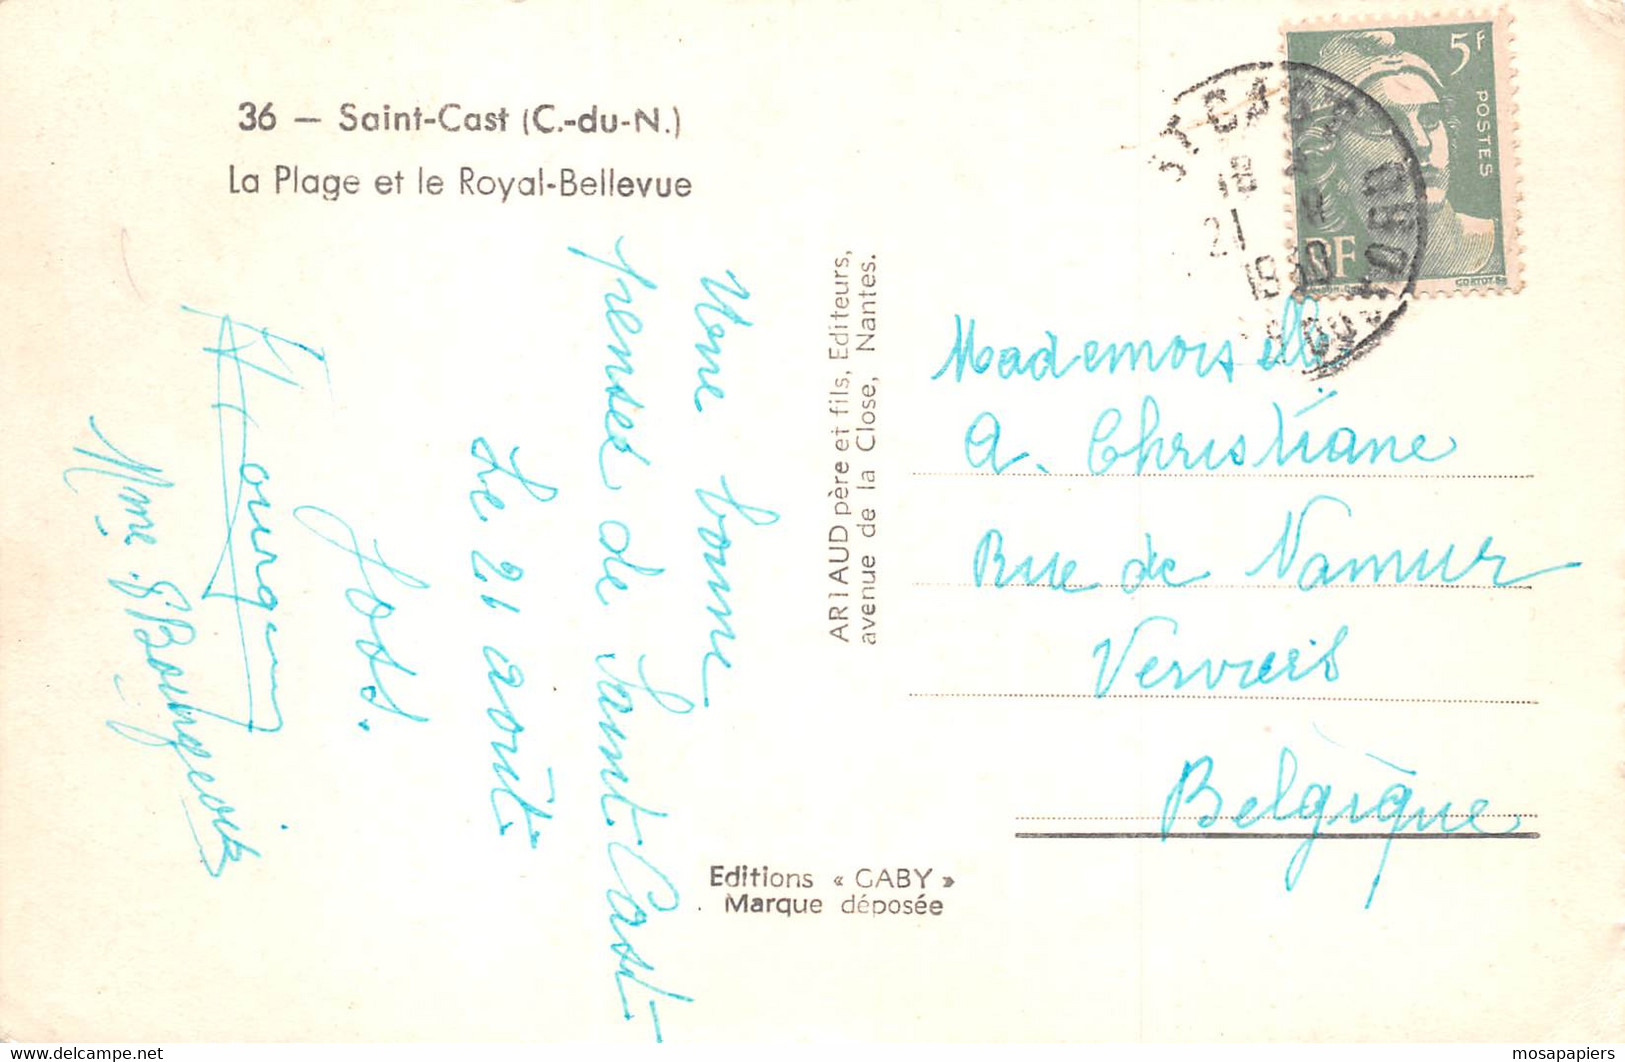 36 — Saint-Cast (C.-du-N.)
La Plage et le Royal-Bellevue
Une bonne
pensée de Saint-Cast
Le 21 août.
Mme Bourgeois
ARIAUD père et fils, Editeurs,
avenue de la Close, Nantes.
Editions « GABY »
Marque déposée
5F
POSTES
RF
ST CAST
18
21
1950
Mademoiselle
A. Christiane
Rue de Namur
Verviers
Belgique
delcampe.net
mosapapiers